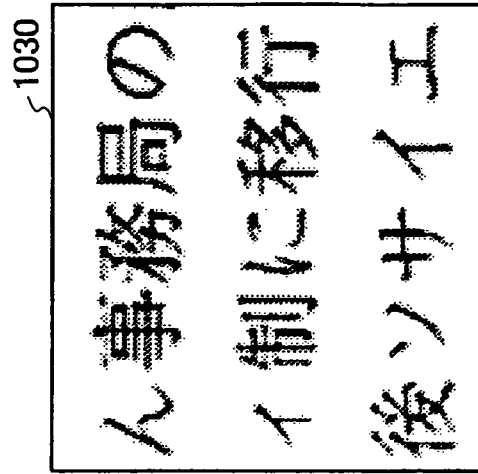 1030
ん事務局の
ィ制に移行
後ソサイエ